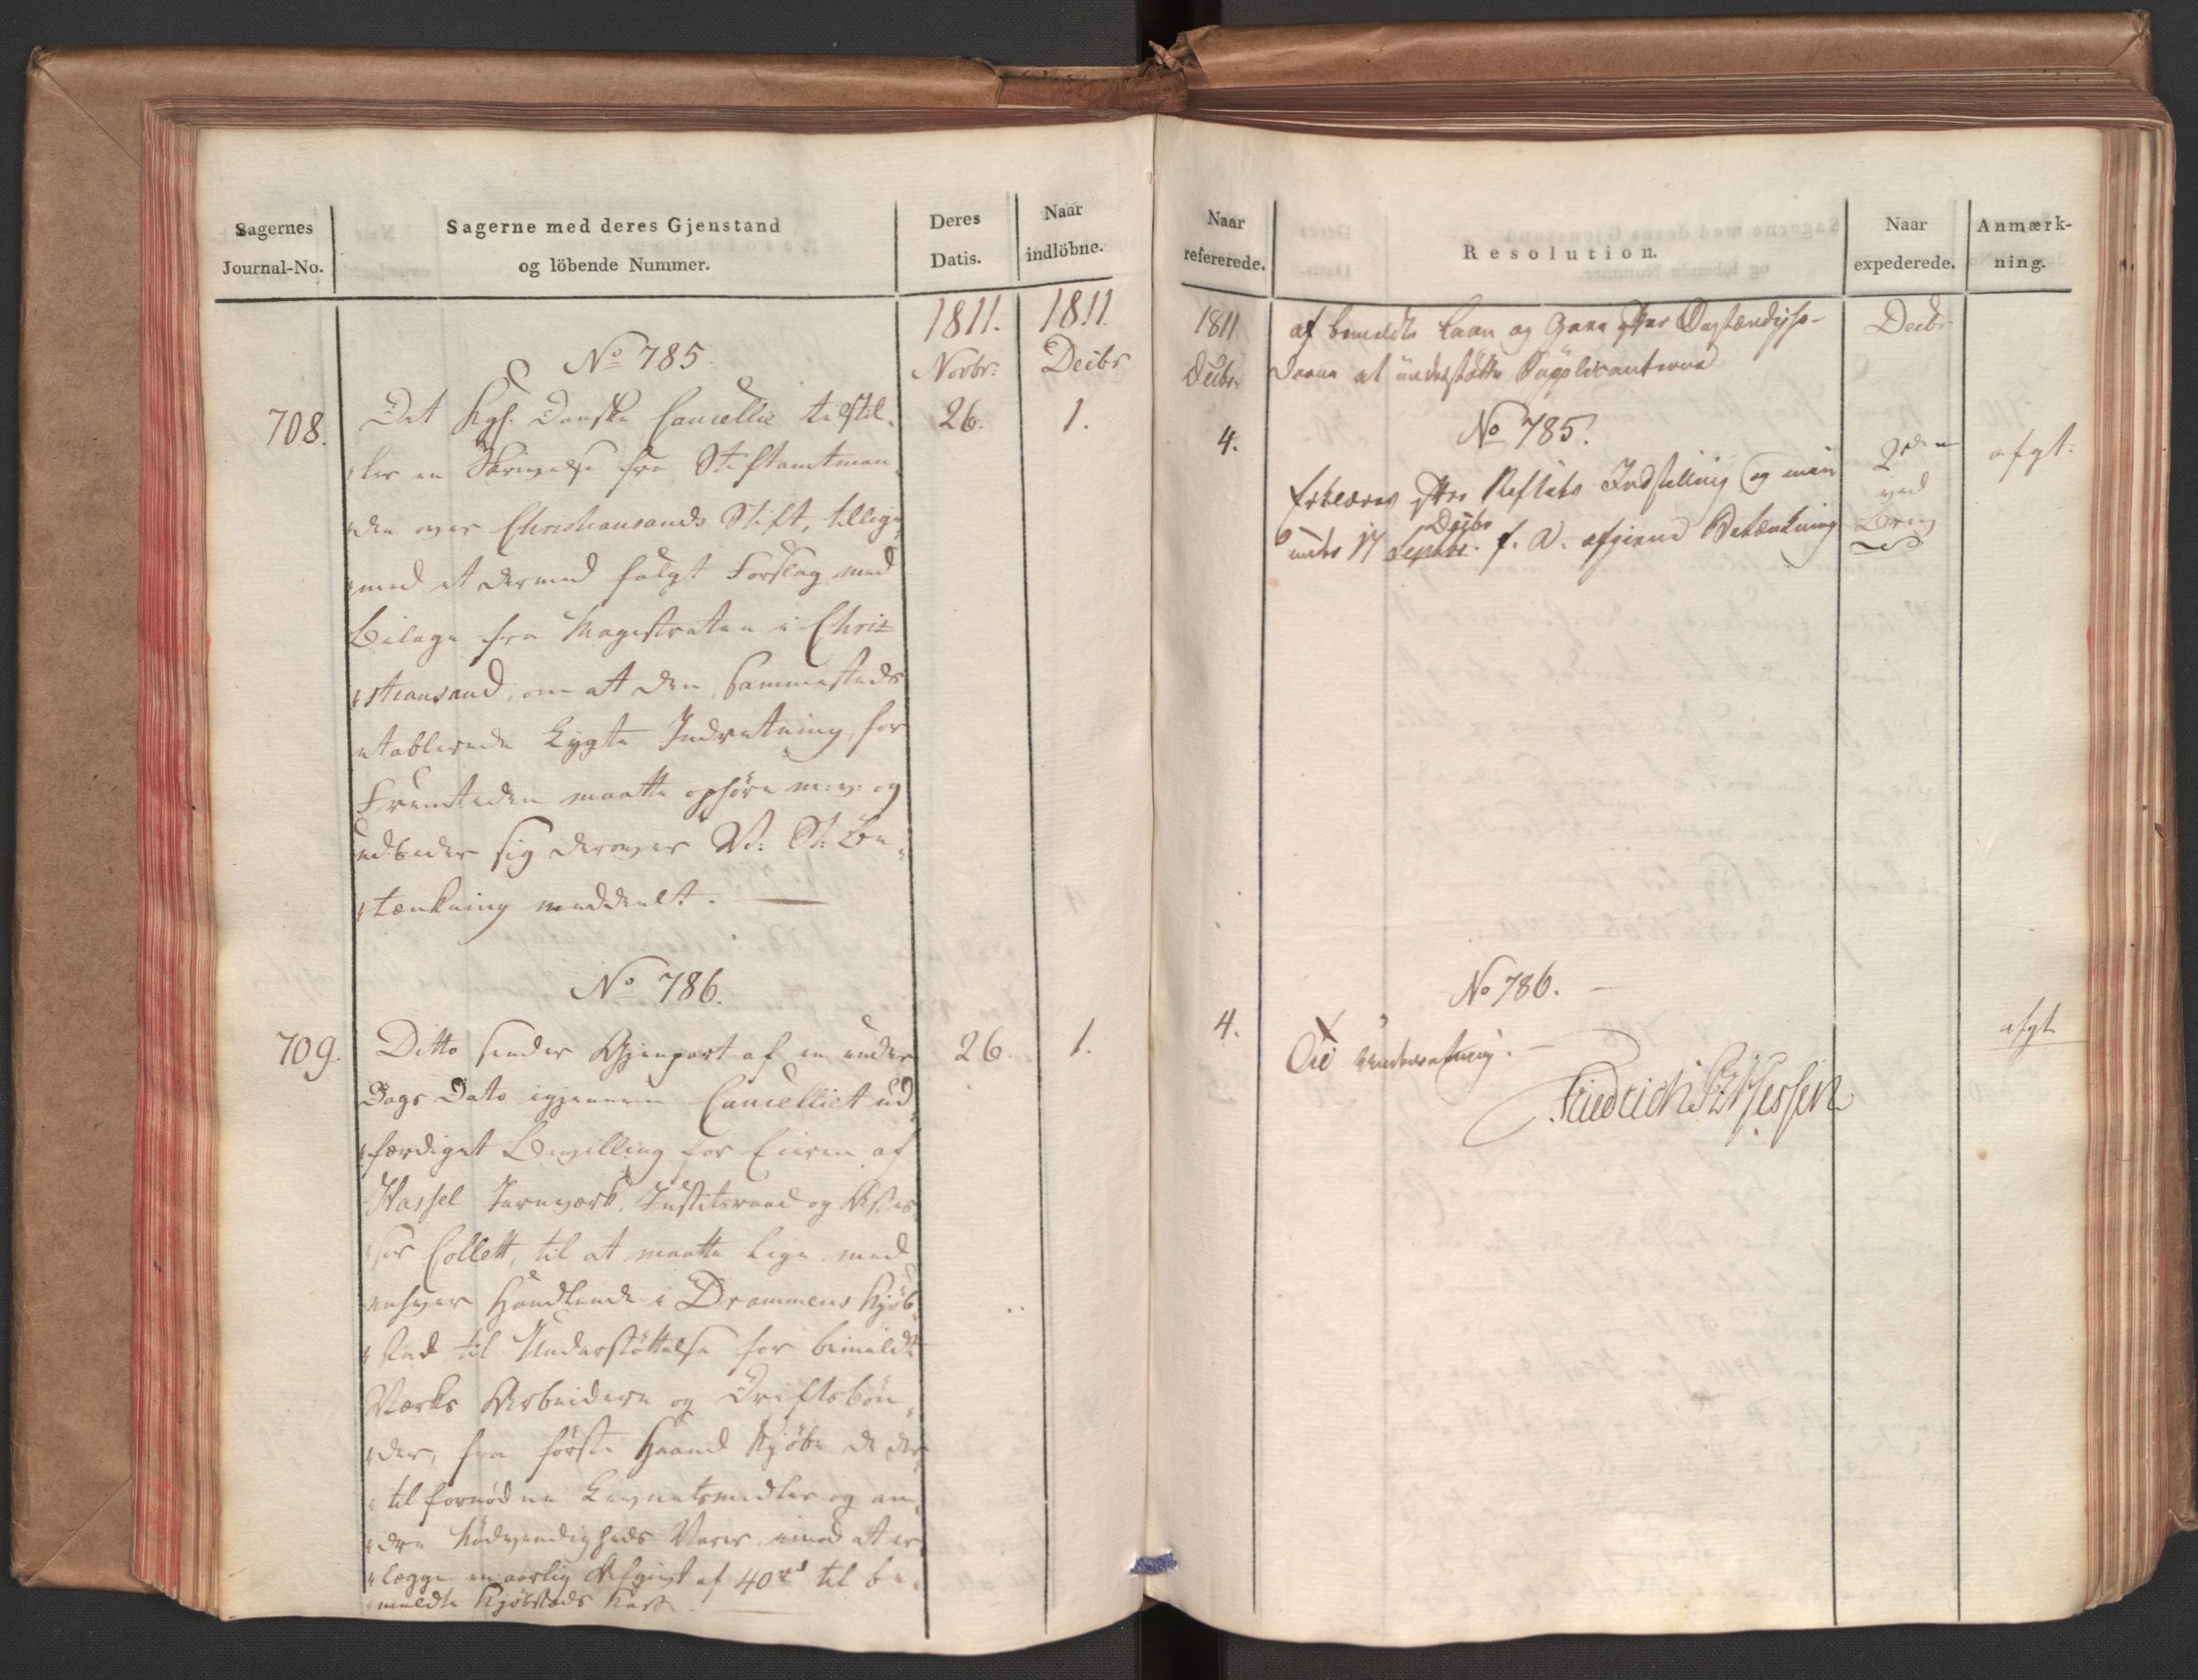 Sagernes
Journal-No.
Sagerne med deres Gjenstand
og löbende Nummer.
Deres
Datis.
Naar
indlöbne.
1811. 1811
Novbr. Decbr
No 785.
708. Det Kgl. Danske Cancellie tilstil- 26. 1.
ler en Skrivelse fra Stiftamtman
den over Christiansands Stift, tillige
med et dermed fulgt Forslag med
Bilage fra Magistraten i Chri-
stiansand, om at den sammesteds
etablerede Lygte Indretning, for
Fremtiden maatte ophöre m: v: og
udbeder sig derover V: St: Be-
tænkning meddeelt.
No 786.
709. Ditto sender Gjenpart af en under 26. 1.
Dags Dato igjennem Cancelliet ud
færdiget Bevilling for Eieren af
Hassel Jernværk, Justitsraad og Asses
sor Collett, til at maatte lige med
enhver Handlende i Drammens Kjöb
stad, til Understöttelse for bemeldte
Værks Arbeidere og Driftsbön-
der, fra förste Haand kjöbe de der
til fornödne Levnetsmidler og an
dre Nödvendigheds Varer, imod at er
lægge en aarlig Afgivt af 40 rd til be-
meldte Kjöbstads Kasse.
Naar
refererede.
Resolution.
Naar
expederede.
Anmærk-
ning.
1811 af bemeldte Laan og Decbr
Decbr. at understötte Supplicanterne
No 785.
4. Erklæres efter Refltets Indstilling og min 2den afgt.
under 17 Septbr. f. A. afgivne Betænkning ved
Decbr
Brev
No 786.
4. Til Underretning. afgt
Friedrich Pz Hessen